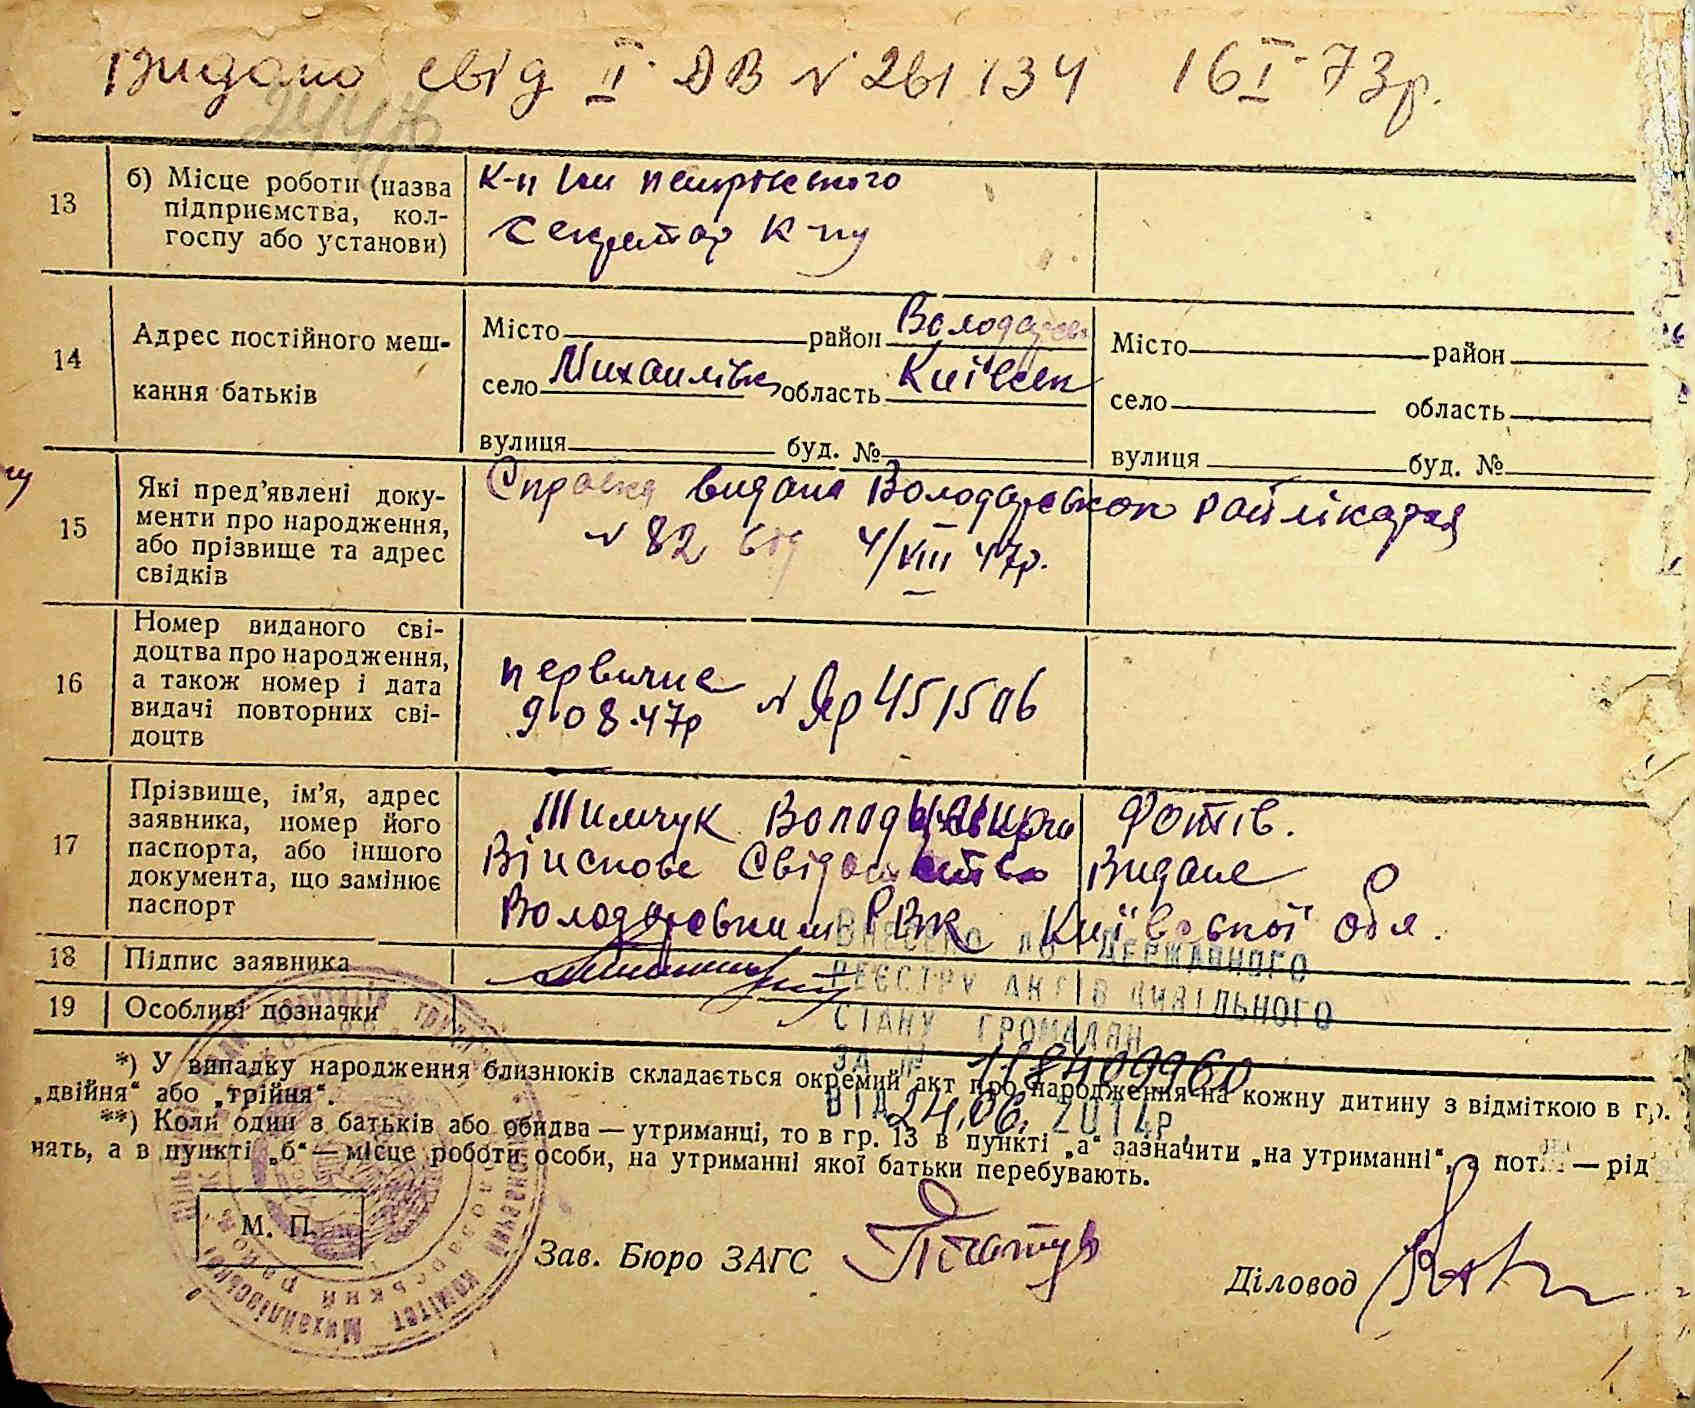 Видано свід II ДВ № 261134 16 I 73р.
13
б) Місце роботи (назва
підприємства, кол-
госпу або установи)
К-п Ім петрівського
секретар к-пу
14
Адрес постійного меш-
кання батьків
Місто район Володарсь
село Михайлівк область Київськ
вулиця буд. №
Місто район
село область
вулиця буд. №
15
Які пред'явлені доку-
менти про народження,
або прізвище та адрес
свідків
Справка видана Володарською райлікарня
№ 82 від 4/VIII 47р.
16
Номер виданого сві-
доцтва про народження,
а також номер і дата
видачі повторних сві-
доцтв
первичне
9.08.47р № Яр 451506
17
Прізвище, ім'я, адрес
заявника, номер його
паспорта, або іншого
документа, що замінює
паспорт
Шимчук Фотів.
Військове Свідоцтво Видане
Володарським РВК Київської обл.
18
Підпис заявника
19
Особливі позначки
ВНЕСЕНО ДО ДЕРЖАВНОГО
РЕЄСТРУ АКТІВ ЦИВІЛЬНОГО
СТАНУ ГРОМАДЯН
ЗА № 118409960
ВІД 24.06. 2014р.
*) У випадку народження близнюків складається окремий акт про народження на кожну дитину з відміткою в гр.
„двійня“ або „трійня“.
**) Коли один з батьків або обидва — утриманці, то в гр. 13 в пункті „а“ зазначити „на утриманні“, а — рід
нять, а в пункті „б“ — місце роботи особи, на утриманні якої батьки перебувають.
М. П.
Зав. Бюро ЗАГС
Діловод